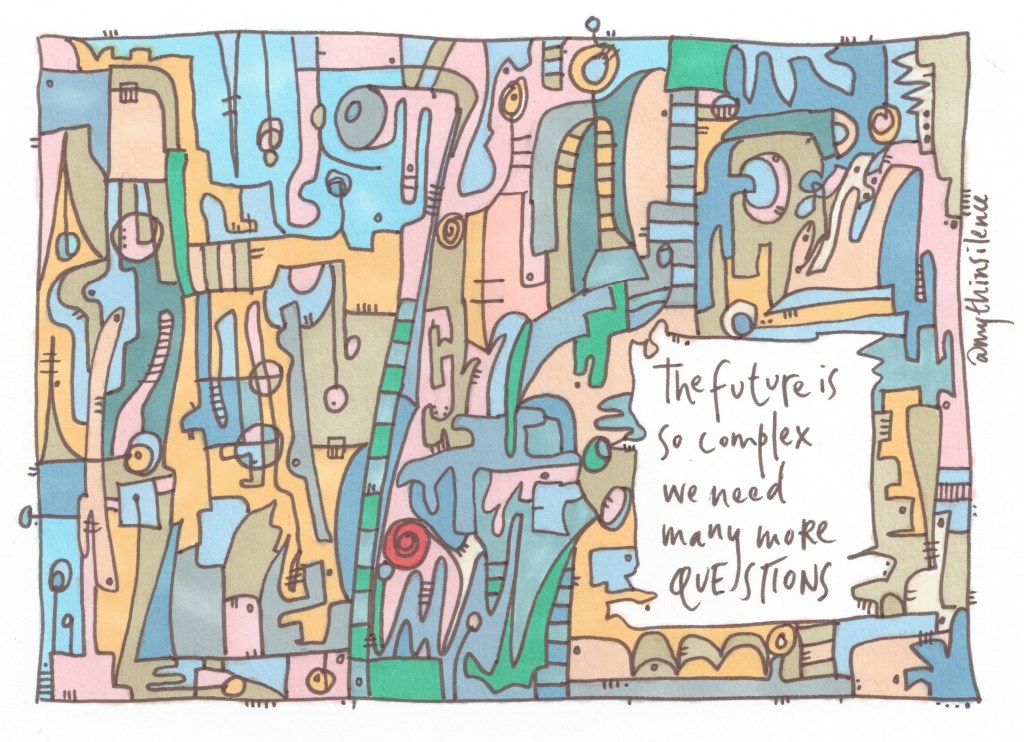 The future is
so complex
we need
many more
QUESTIONS
@mythinsilence